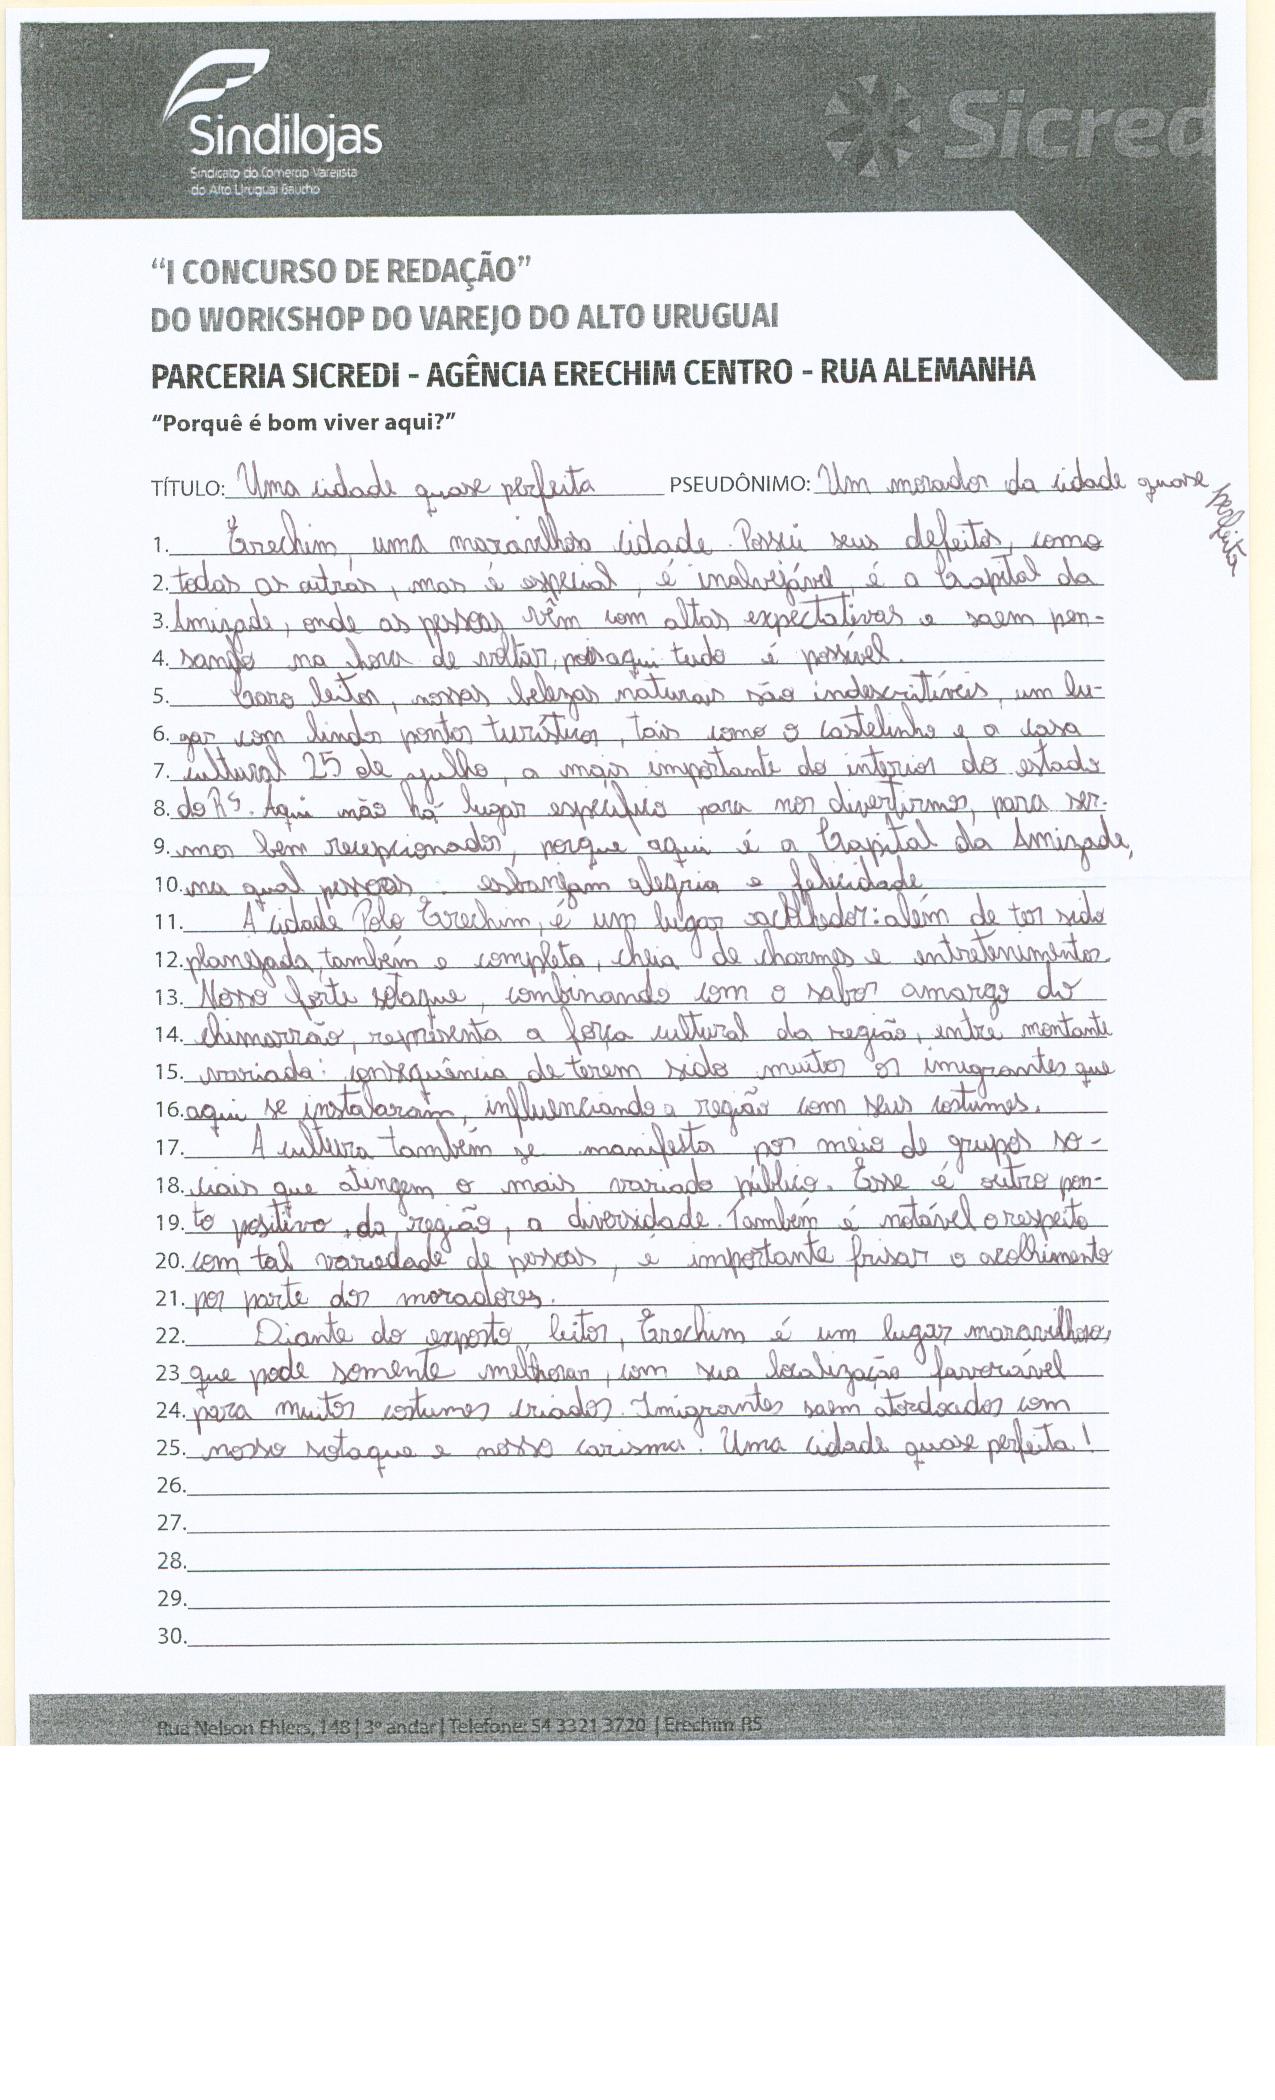 Sindilojas
Sindicato do Comercio Varejista
do Alto Uruguai Gaucho
Sicred
“I CONCURSO DE REDAÇÃO”
DO WORKSHOP DO VAREJO DO ALTO URUGUAI
PARCERIA SICREDI - AGÊNCIA ERECHIM CENTRO - RUA ALEMANHA
“Porquê é bom viver aqui?”
TÍTULO: Uma cidade quase perfeita PSEUDÔNIMO: Um morador da cidade quase perfeita
1. Erechim, uma maravilhosa cidade. Possui seus defeitos, como
2. todas as outras, mas é especial, é invejável, é a Capital da
3. Amizade, onde as pessoas vêm com altas expectativas e saem pen-
4. sando na hora de voltar, pois aqui tudo é possível.
5. Caro leitor, nossas belezas naturais são indescritíveis, um lu-
6. gar com lindos pontos turísticos, tais como o castelinho e a casa
7. cultural 25 de julho, a mais importante do interior do estado
8. do RS. Aqui não há lugar específico para nos divertirmos, para ser-
9. mos bem recepcionados, porque aqui é a Capital da Amizade,
10. na qual pessoas esbanjam alegria e felicidade
11. A cidade Polo Erechim, é um lugar acolhedor: além de ter sido
12. planejada, também e completa, cheia de charmes e entretenimentos.
13. Nosso forte sotaque, combinando com o sabor amargo do
14. chimarrão, representa a força cultural da região, entre montante
15. variada: consequência de terem sido muitos os imigrantes que
16. aqui se instalaram, influenciando a região com seus costumes.
17. A cultura também se manifesta por meio de grupos so-
18. ciais que atingem o mais variado público. Esse é outro pon-
19. to positivo da região, a diversidade. Também é notável o respeito
20. com tal variedade de pessoas, é importante frisar o acolhimento
21. por parte dos moradores.
22. Diante do exposto, leitor, Erechim é um lugar maravilhoso,
23. que pode somente melhorar, com sua localização favorável
24. para muitos costumes criados. Imigrantes saem atordoados com
25. nosso sotaque e nosso carisma. Uma cidade quase perfeita!
26.
27.
28.
29.
30.
Rua Nelson Ehlers, 148 | 3º andar | Telefone: 54 3321 3720 | Erechim RS